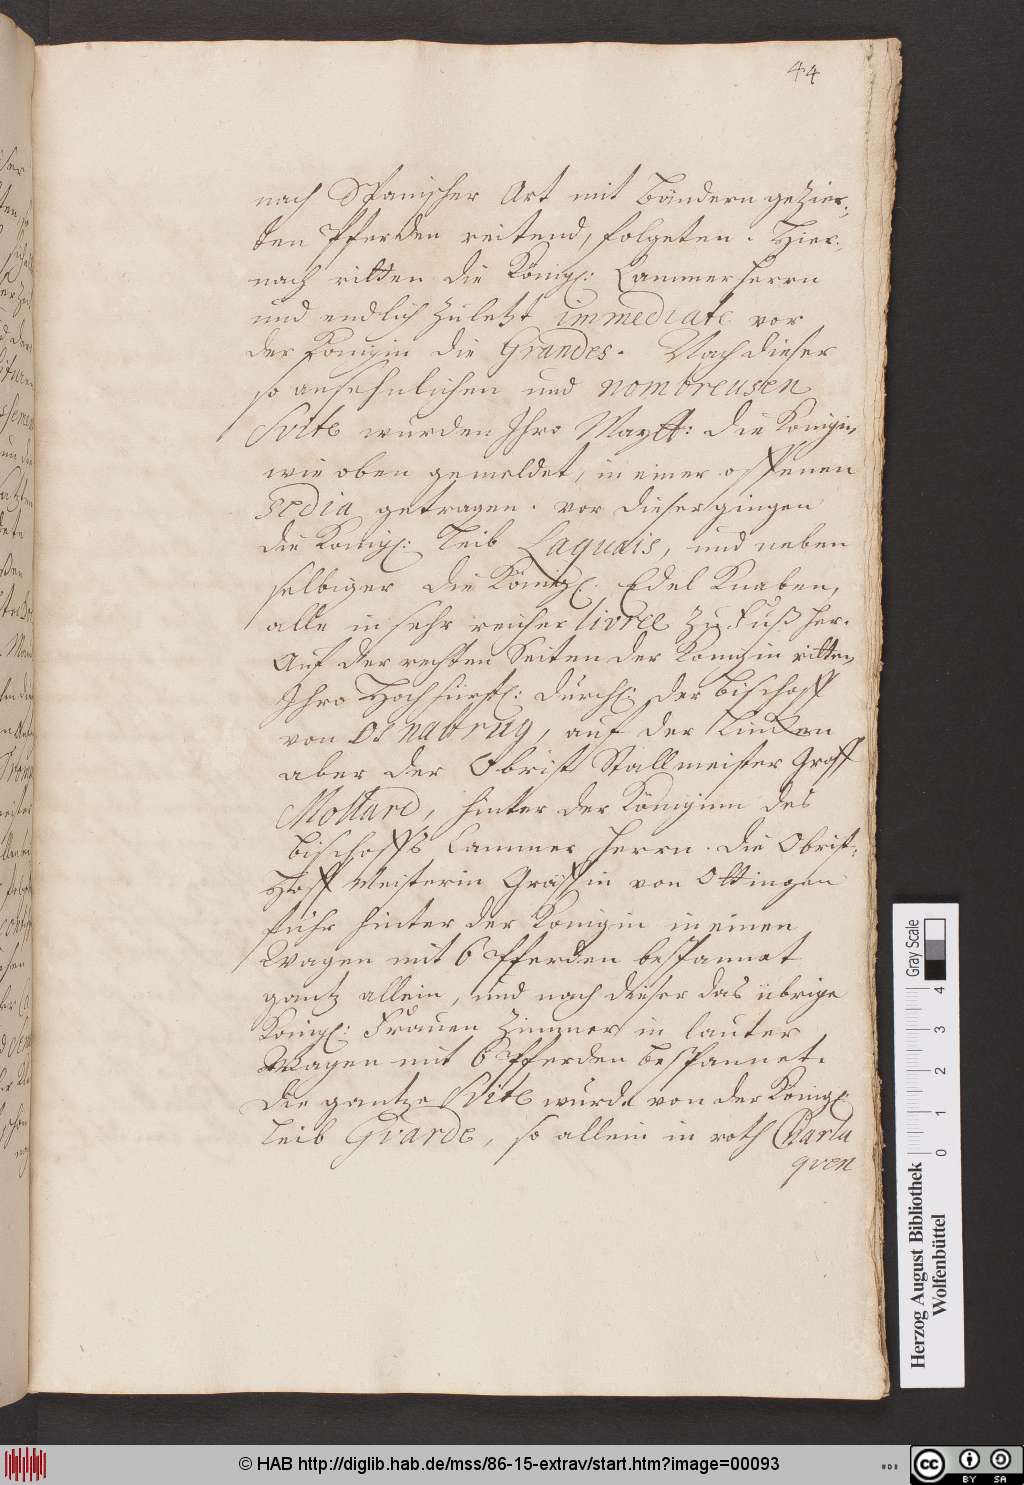 44
nach Spanischer Art mit Bändern gezier-
ten Pferden reitend, folgeten. Hier-
nach ritten die Königl: Cammerherrn
und endlich zuletzt immediate vor
der Königin die Grandes. Nach dieser
so ansehnlichen und nombreusen
Svite wurden Ihro Maytt: die Königin,
wie oben gemeldet, in einer offenen
Sedia getragen. vor dieser gingen
die Königl: Leib Laquais, und neben
selbiger die Königl. Edel Knaben,
alle in sehr reicher livrée zu Fuß her.
Auf der rechten Seiten der Königin ritten
Ihro Hochfürstl: Durchl: der Bischoff
von Osnabrug, auf der Lincken
aber der Obrist Stallmeister Graff
Mollard, hinter der Königinn des
Bischoffs Cammer Herrn. die Obrist-
Hoff Meisterin Gräffin von Ottingen
fuhr hinter der Königin in einen
Wagen mit 6 Pferden bespannet
gantz allein, und nach dieser das übrige
Königl: Frauen Zimmer in lauter
Wagen mit 6 Pferden bespannet.
die gantze Svite wurde von der Königl
Leib Gvarde, so allein in roth Charla
qven
Herzog August Bibliothek
Wolfenbüttel
Gray Scale
0 1 2 3 4
© HAB http://diglib.hab.de/mss/86-15-extrav/start.htm?image=00093
cc BY SA